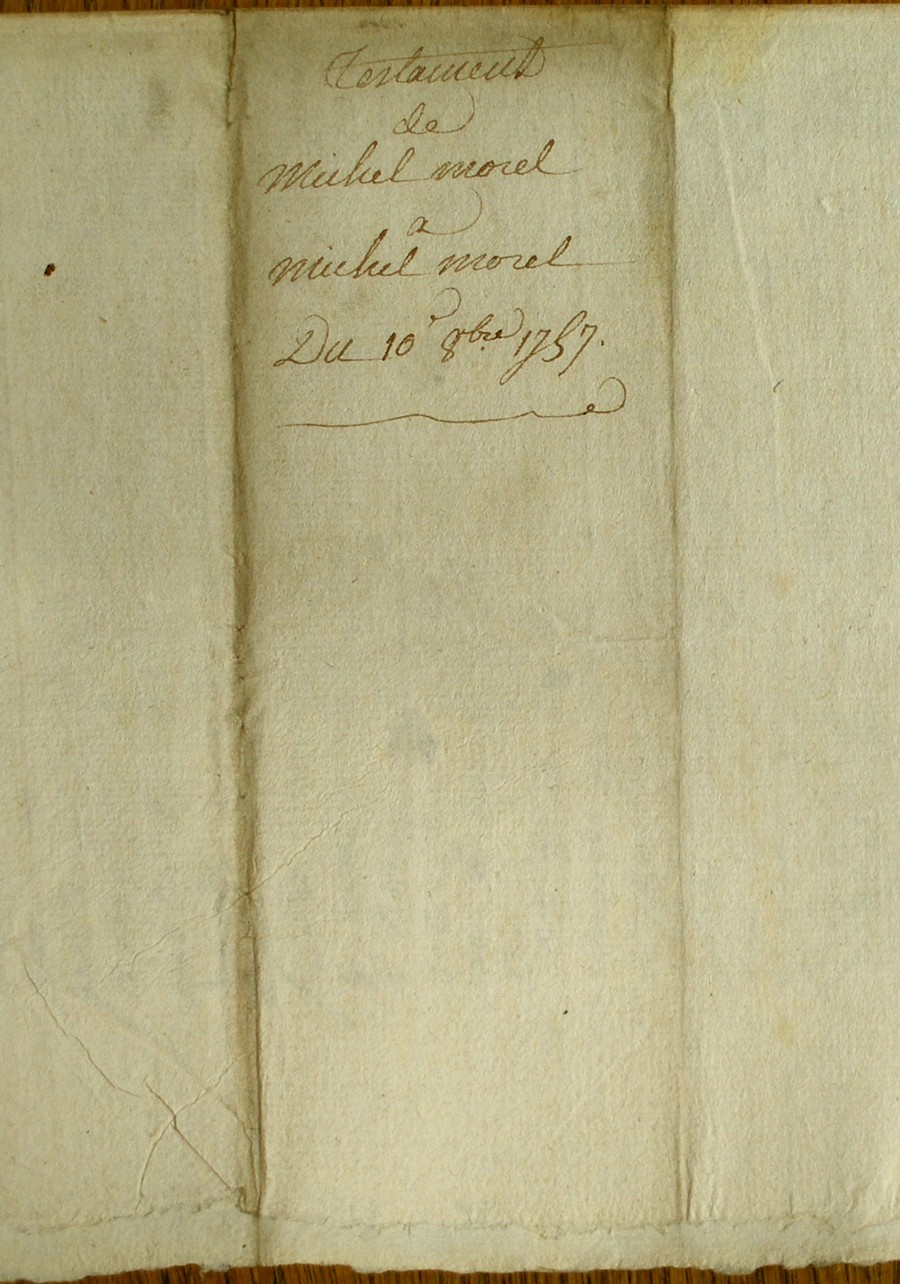 Testament
de
Michel morel
a
michel morel
Du 10e 8bre 1757.